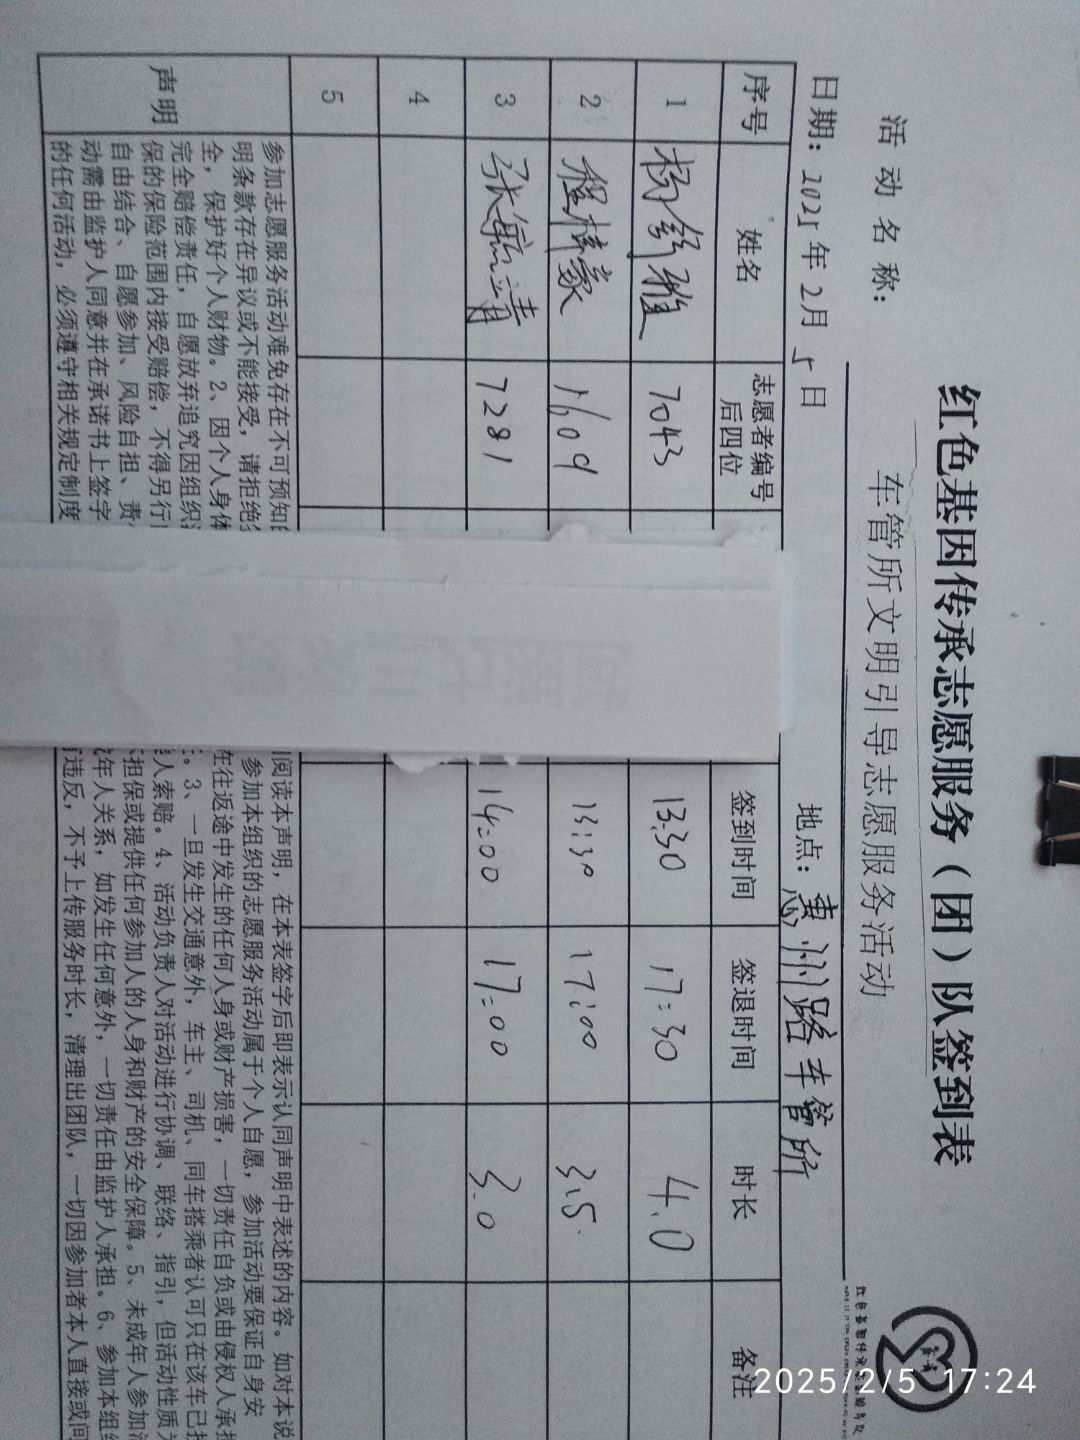 红色基因传承志愿服务（团）队签到表
活动名称：车管所文明引导志愿服务活动
日期：2025年2月5日 地点：惠州路车管所
序号 姓名 志愿者编号后四位 签到时间 签退时间 时长 备注
1 杨舒雅 7043 13:30 17:30 4.0
2 程梓豪 1609 13:30 17:00 3.5
3 张航清 7281 14:00 17:00 3.0
4
5
声明
参加志愿服务活动难免存在不可预知 阅读本声明，在本表签字后即表示认同声明中表述的内容。如对本说
明条款存在异议或不能接受，请拒绝 参加本组织的志愿服务活动属于个人自愿，参加活动要保证自身安
全，保护好个人财物。2、因个人身体 在往返途中发生的任何人身或财产损害，一切责任自负或由侵权人承担
完全赔偿责任，自愿放弃追究因组织 3、一旦发生交通意外，车主、司机、同车搭乘者认可只在该车已投
保的保险范围内接受赔偿，不得另行 人索赔。4、活动负责人对活动进行协调、联络、指引，但活动性质为
自由结合、自愿参加、风险自担、责 担保或提供任何参加人的人身和财产的安全保障。5、未成年人参加活
动需由监护人同意并在承诺书上签字 年人关系，如发生任何意外，一切责任由监护人承担。6、参加本组织
的任何活动，必须遵守相关规定制度 违反，不予上传服务时长，清理出团队，一切因参加者本人直接或间
2025/2/5 17:24